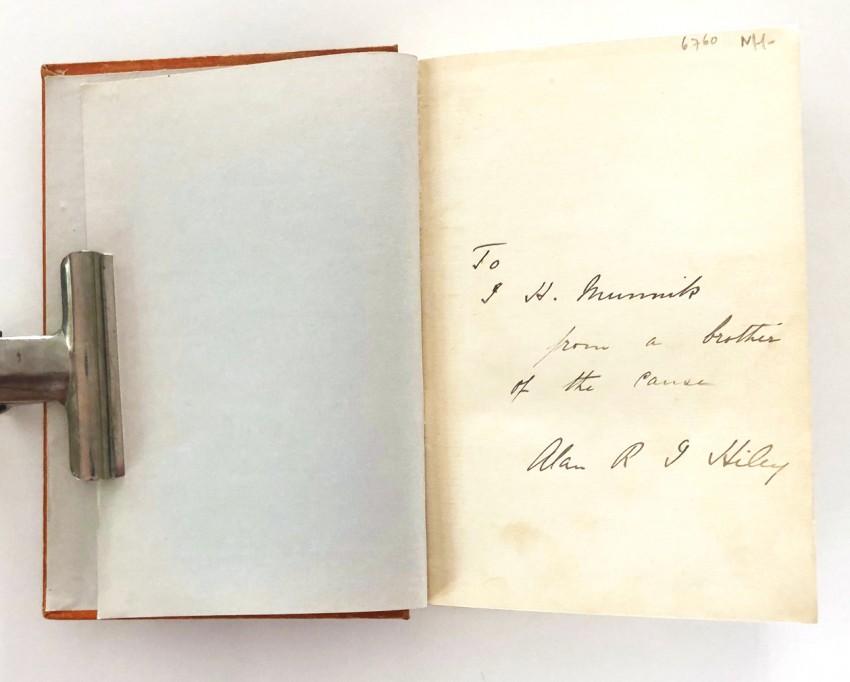 6760 NH-
To
J H. Munnik
from a brother
of the cause
Alan R I Hiley